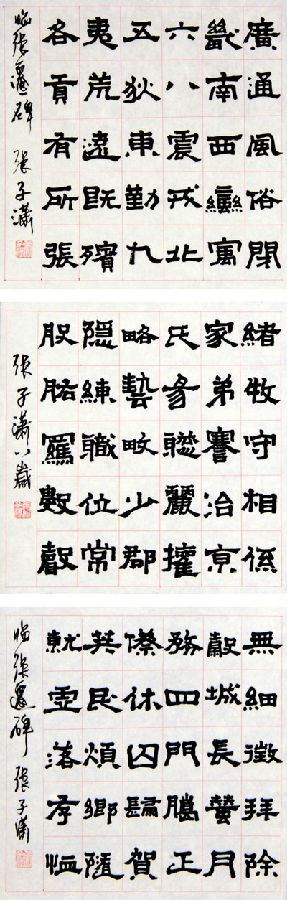 廣通風俗開
畿南西蠻寓
六八震戎北
五狄東勤九
夷荒遠既殯
各貢有所張
临張遷碑 張子瀟
緒牧守相係
家弟謇治京
氏孝聡麗權
略藝畋少郡
隱練職位常
股肱羈數穀
張子瀟八歲
無細徵拜除
穀城長蠶月
務四門騰正
僚休囚歸賀
其民煩鄉隨
就虛落存恤
临張遷碑 張子瀟